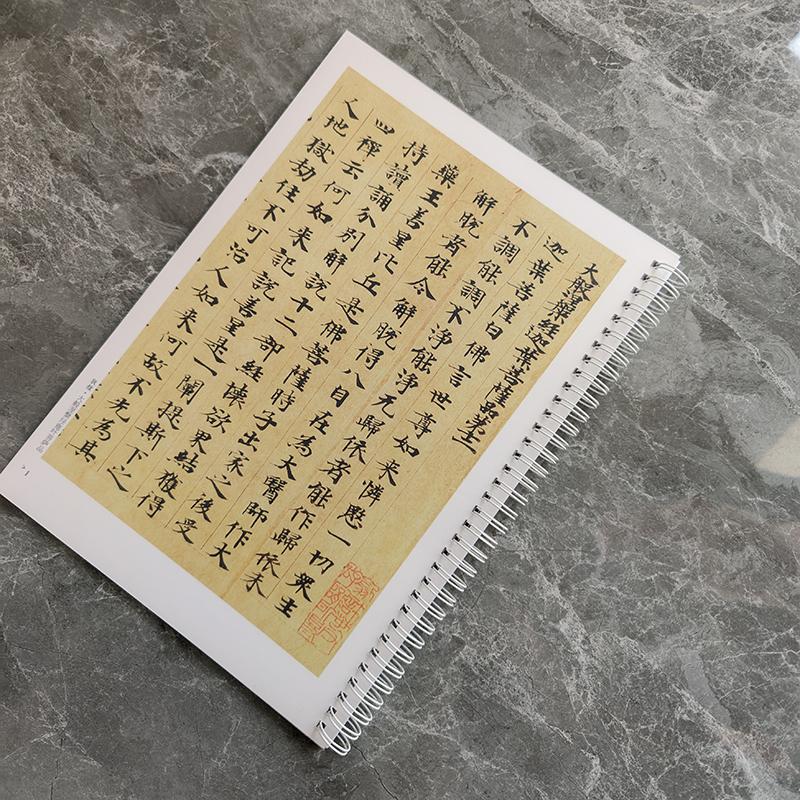 大般涅槃經迦葉菩薩品
迦葉菩薩白佛言世尊如來憐愍一切眾生
不調能調不淨能淨无歸依者能作歸依未
解脫者能令解脫得八自在為大醫師作大
藥王善星比丘是佛菩薩時子出家之後受
持讀誦分別解說十二部經壞欲界結獲得
四禪云何如來記說善星是一闡提斯下之
人地獄劫住不可治人如來何故不先為其